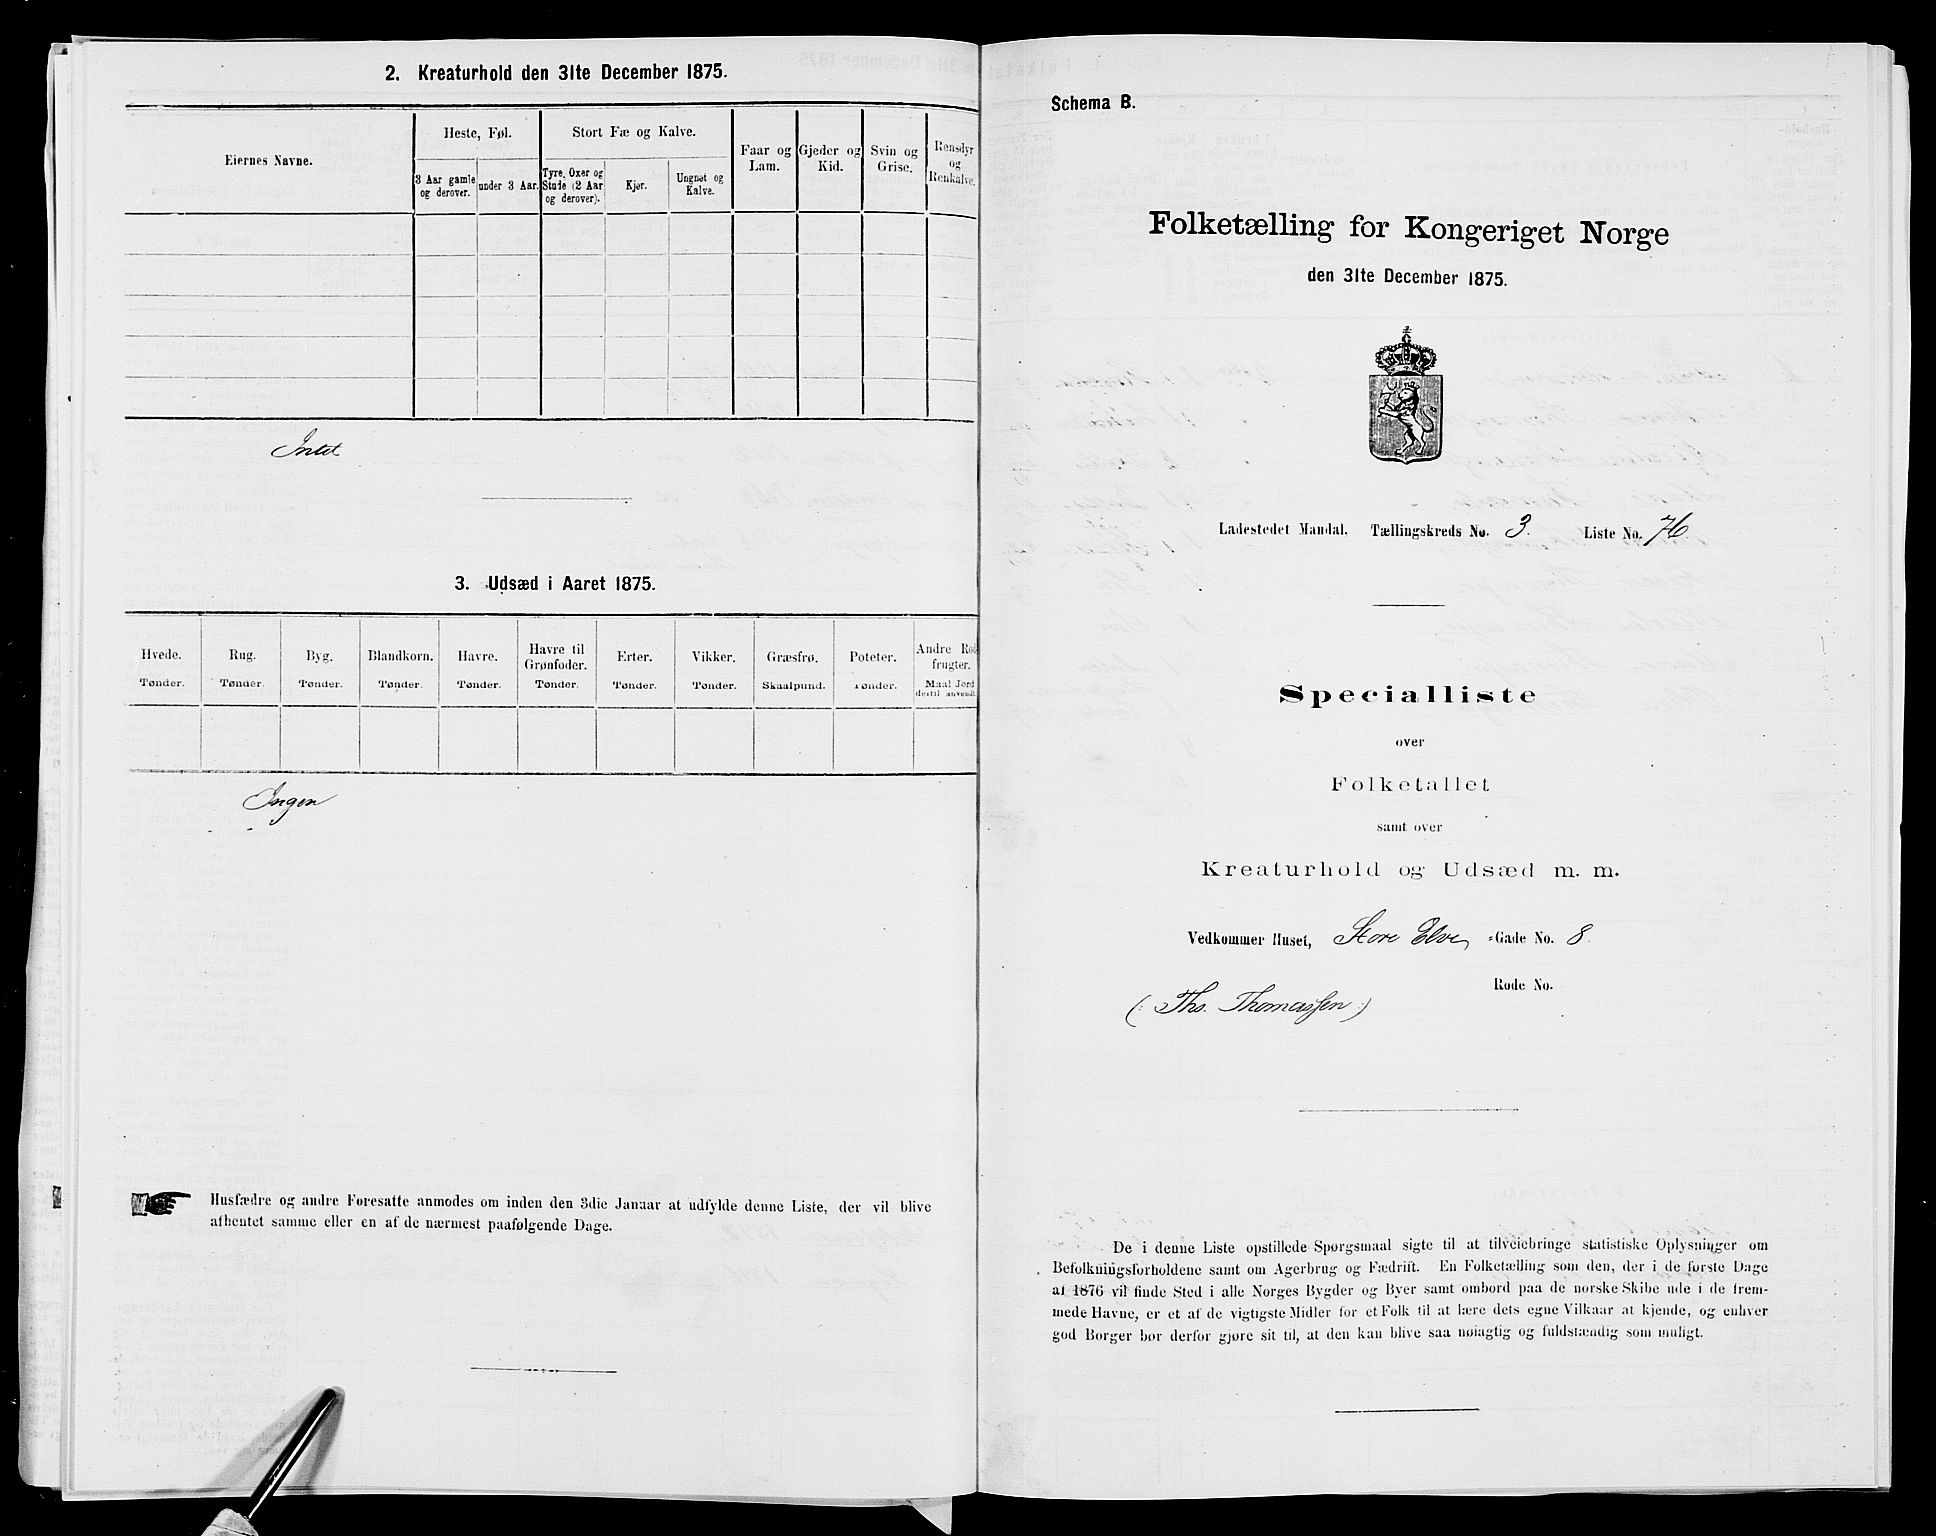 2. Kreaturhold den 31te December 1875.
Eiernes Navne.
Heste, Føl.
3 Aar gamle og derover.
under 3 Aar.
Stort Fæ og Kalve.
Tyre, Oxer og Stude (2 Aar og derover).
Kjør.
Ungnøt og Kalve.
Faar og Lam.
Gjeder og Kid.
Svin og Grise.
Rensdyr og Renkalve.
Intet
3. Udsæd i Aaret 1875.
Hvede. Rug. Byg. Blandkorn. Havre. Havre til Grønfoder. Erter. Vikker. Græsfrø. Poteter. Andre Rodfrugter.
Tønder. Tønder. Tønder. Tønder. Tønder. Tønder. Tønder. Tønder. Skaalpund. Tønder. Maal Jord dertil anvendt.
Ingen
Husfædre og andre Foresatte anmodes om inden den 3die Januar at udfylde denne Liste, der vil blive
afhentet samme eller en af de nærmest paafølgende Dage.
Schema B.
Folketælling for Kongeriget Norge
den 31te December 1875.
Ladestedet Mandal. Tællingskreds No. 3. Liste No. 76
Specialliste
over
Folketallet
samt over
Kreaturhold og Udsæd m. m.
Vedkommer Huset, Store Elve-Gade No. 8.
Rode No.
(: Ths. Thomassen :)
De i denne Liste opstillede Spørgsmaal sigte til at tilveiebringe statistiske Oplysninger om
Befolkningsforholdene samt om Agerbrug og Fædrift. En Folketælling som den, der i de første Dage
af 1876 vil finde Sted i alle Norges Bygder og Byer samt ombord paa de norske Skibe ude i de frem-
mede Havne, er et af de vigtigste Midler for et Folk til at lære dets egne Vilkaar at kjende, og enhver
god Borger bør derfor gjøre sit til, at den kan blive saa nøiagtig og fuldstændig som muligt.